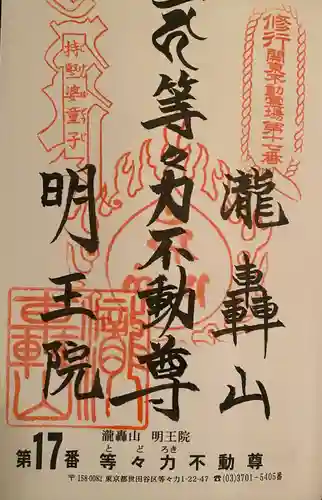 修行
関東不動霊場第十七番
瀧轟山
等々力不動尊
明王院
持堅婆童子
瀧轟山 明王院
とどろき
第17番 等々力不動尊
〒158-0082 東京都世田谷区等々力1-22-47 ☎(03)3701-5405番